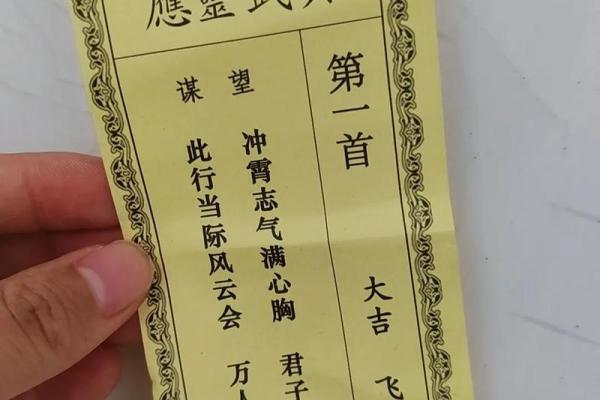 武靈應
第一首
大吉 飞
望谋
冲霄志气满心胸 君子
此行当际风云会 万人